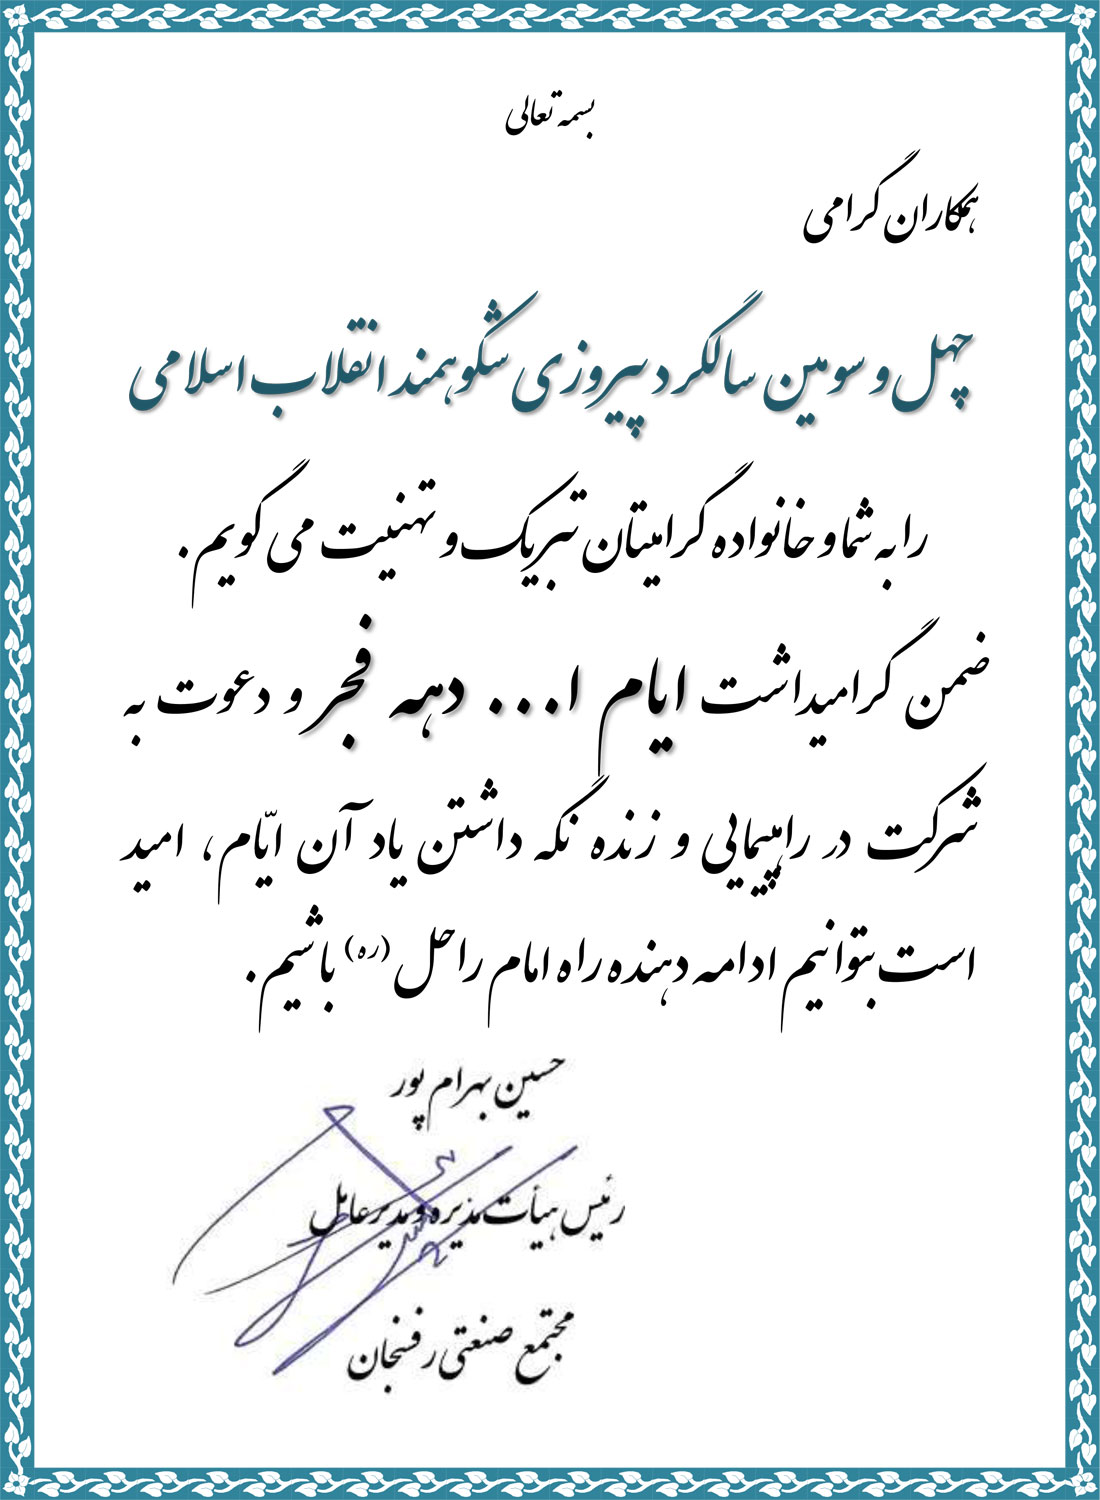 بسمه تعالی
همکاران گرامی
چهل و سومین سالگرد پیروزی شکوهمند انقلاب اسلامی
را به شما و خانواده گرامیتان تبریک و تهنیت می گویم .
ضمن گرامیداشت ایام ا... دهه فجر و دعوت به
شرکت در راهپیمایی و زنده نگه داشتن یاد آن ایّام، امید
است بتوانیم ادامه دهنده راه امام راحل (ره) باشیم .
حسین بهرام پور
رئیس هیأت مدیره و مدیرعامل
مجتمع صنعتی رفسنجان